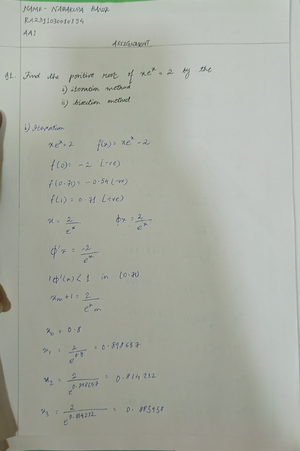 NAME -
AA1
ASSIGNMENT
Q1. Find the positive root of xeˣ = 2 by the
i) iteration method
ii) bisection method
i) Iteration
xeˣ = 2 f(x) = xeˣ - 2
f(0) = -2 (-ve)
f(0.7) = -0.54 (-ve)
f(1) = 0.71 (+ve)
x = 2/eˣ ϕx = 2/eˣ
ϕ'x = -2/eˣ
|ϕ'(x)| < 1 in
xₙ+1 = 2/eˣ
x₀ = 0.8
x₁ = 2/e^0.8 = 0.898657
x₂ = 2/e^0.898657 = 0.814232
x₃ = 2/e^0.814232 =